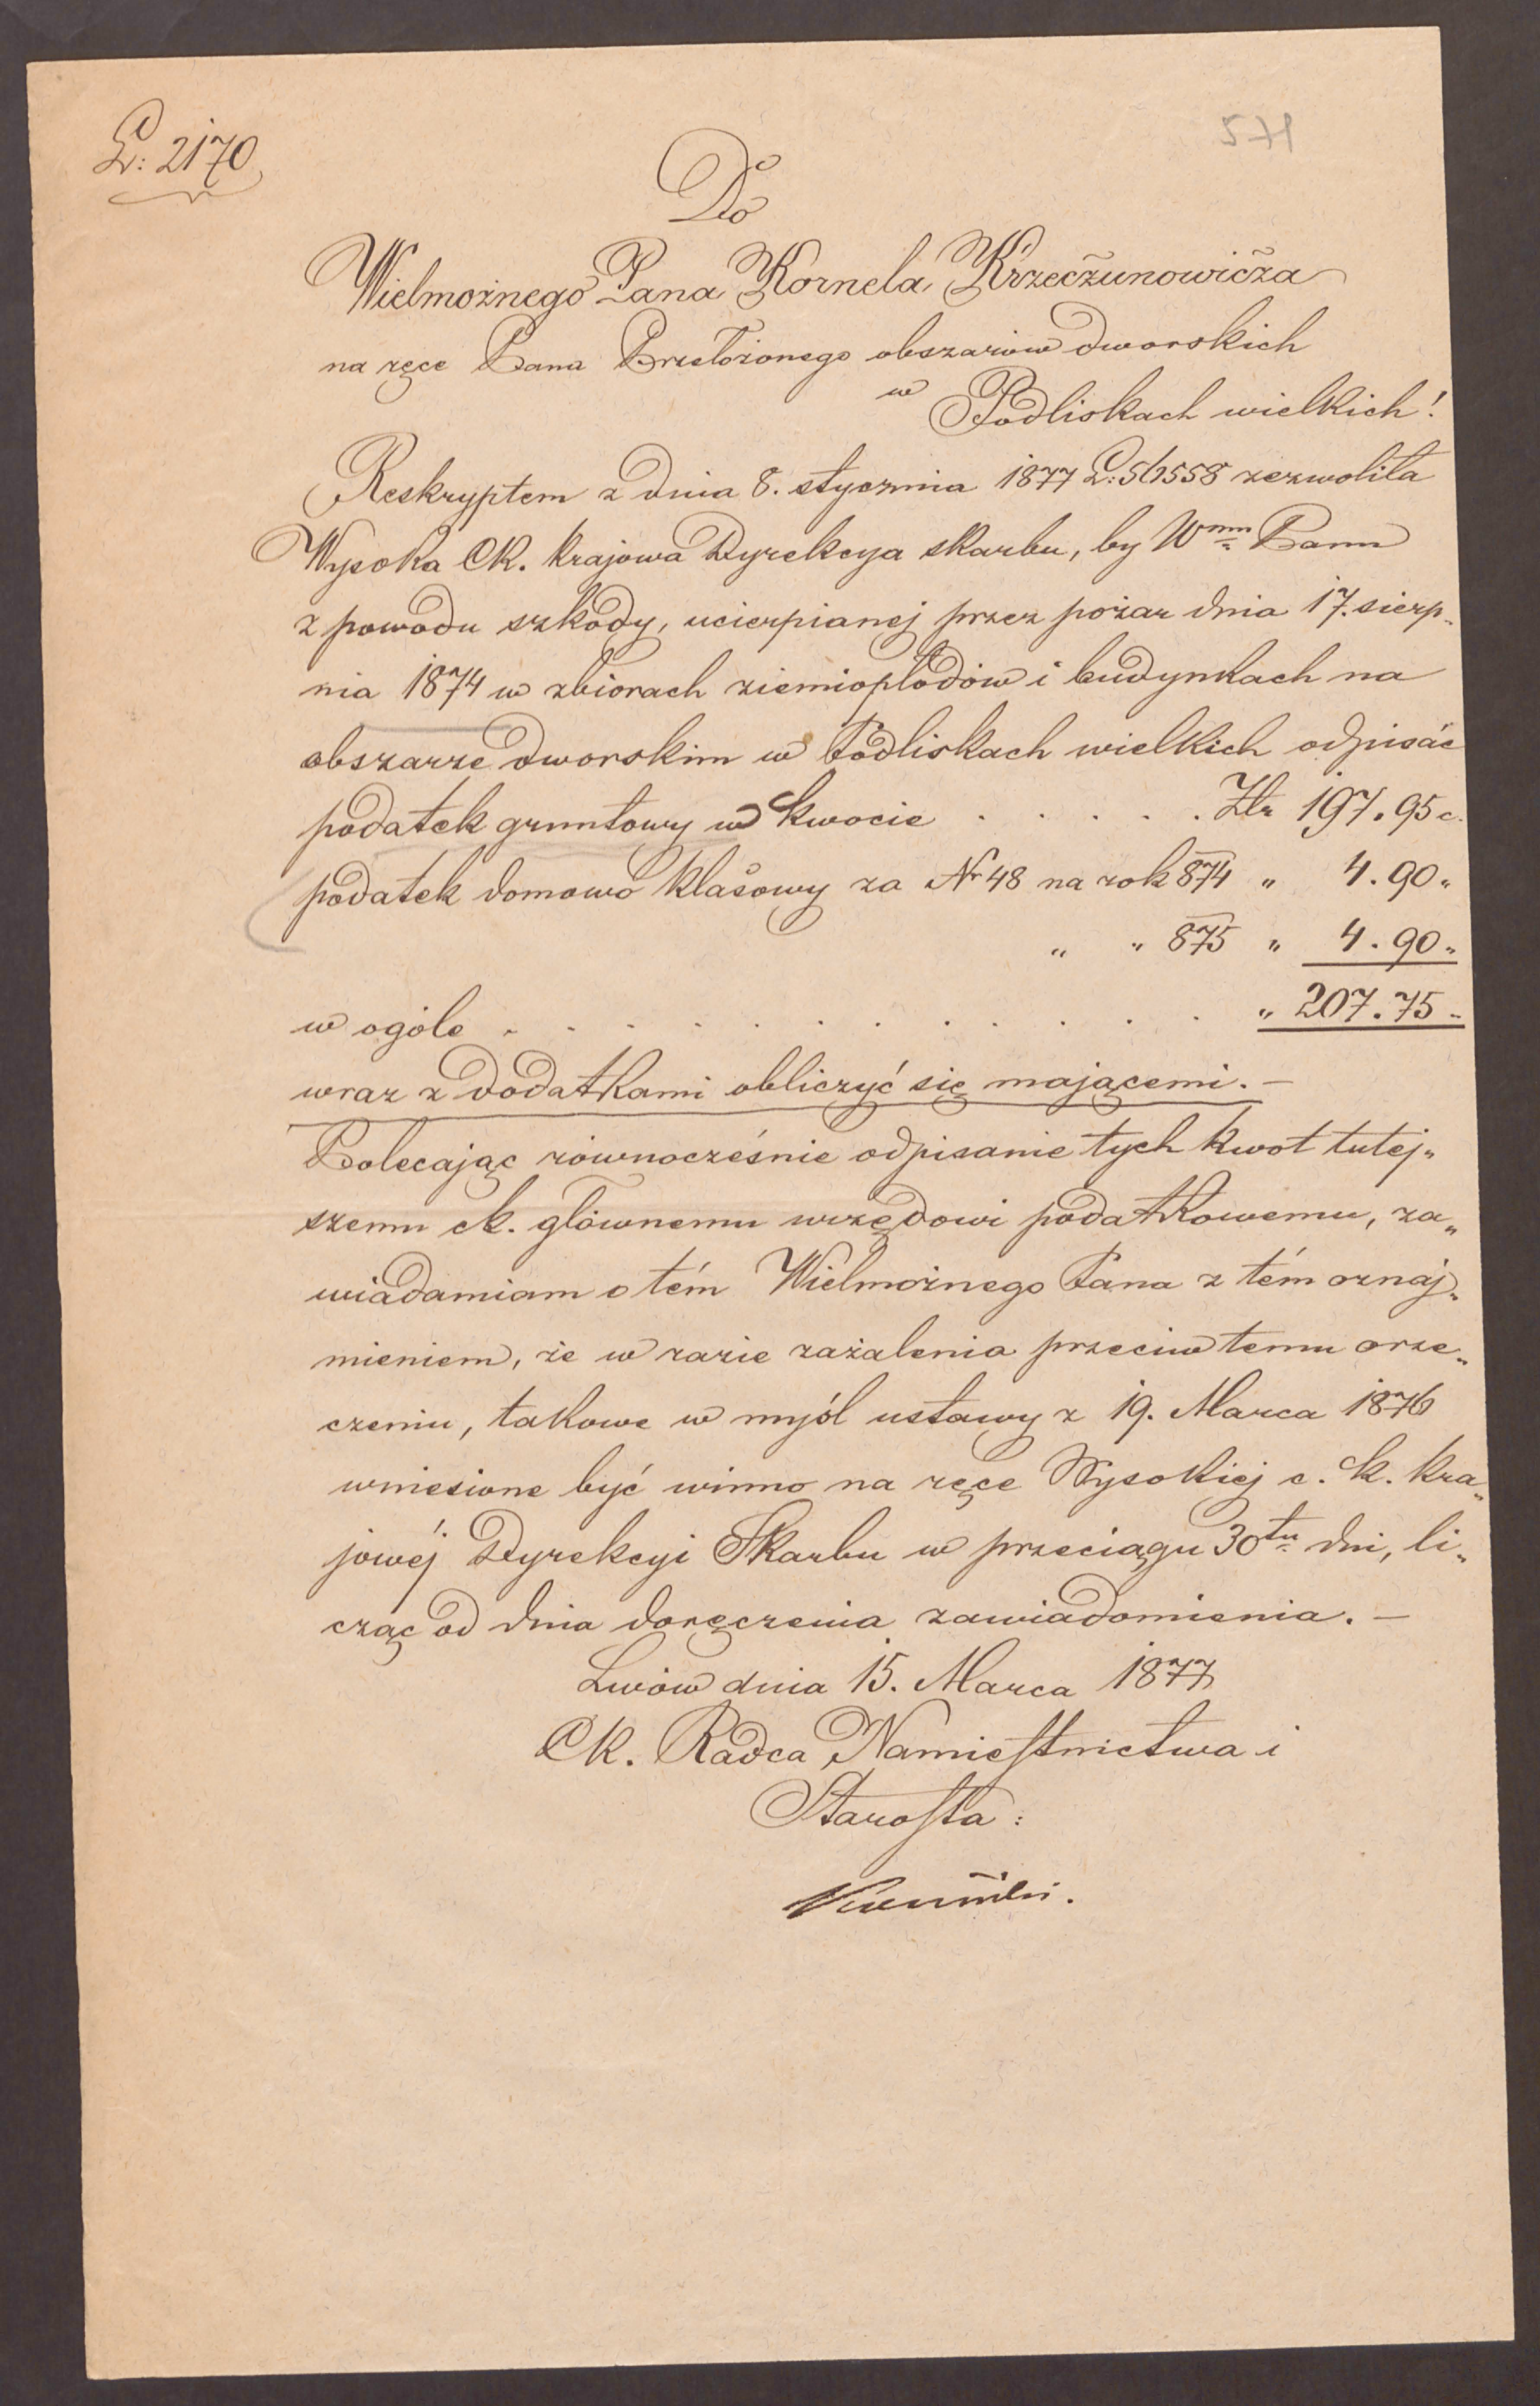 L: 2170
571
Do
Wielmożnego Pana Kornela Krzeczunowicza
na ręce Pana Przełożonego obszarów dworskich
w Podliskach wielkich!
Reskryptem z dnia 8. stycznia 1877 L: 561558 zezwoliła
Wysoka Ck. Krajowa Dyrekcya skarbu, by Wmu Panu
z powodu szkody, ucierpianej przez pożar dnia 17. sierp„
nia 1874 w zbiorach ziemiopłodów i budynkach na
obszarze dworskim w Podliskach wielkich odpisać
podatek gruntowy w kwocie . . . . . Złr 197.95 c.
podatek domowo klasowy za Nr 48 na rok 874 „ 4.90„
„ „ 875 „ 4.90„
w ogóle . . . . . . . . . . . . „ 207.75 „
wraz z dodatkami obliczyć się mającemi. —
Polecając równocześnie odpisanie tych kwot tutej„
szemu ck. głównemu urzędowi podatkowemu, za„
wiadamiam o tém Wielmożnego Pana z tém oznaj„
mieniem, że w razie zażalenia przeciw temu orze„
czeniu, takowe w myśl ustawy z 19. Marca 1876
wniesione być winno na ręce Wysokiej c. k. kra„
jowéj Dyrekcyi Skarbu w przeciągu 30tu dni, li„
cząc od dnia doręczenia zawiadomienia. —
Lwów dnia 15. Marca 1877
Ck. Radca Namiestnictwa i
Starosta: